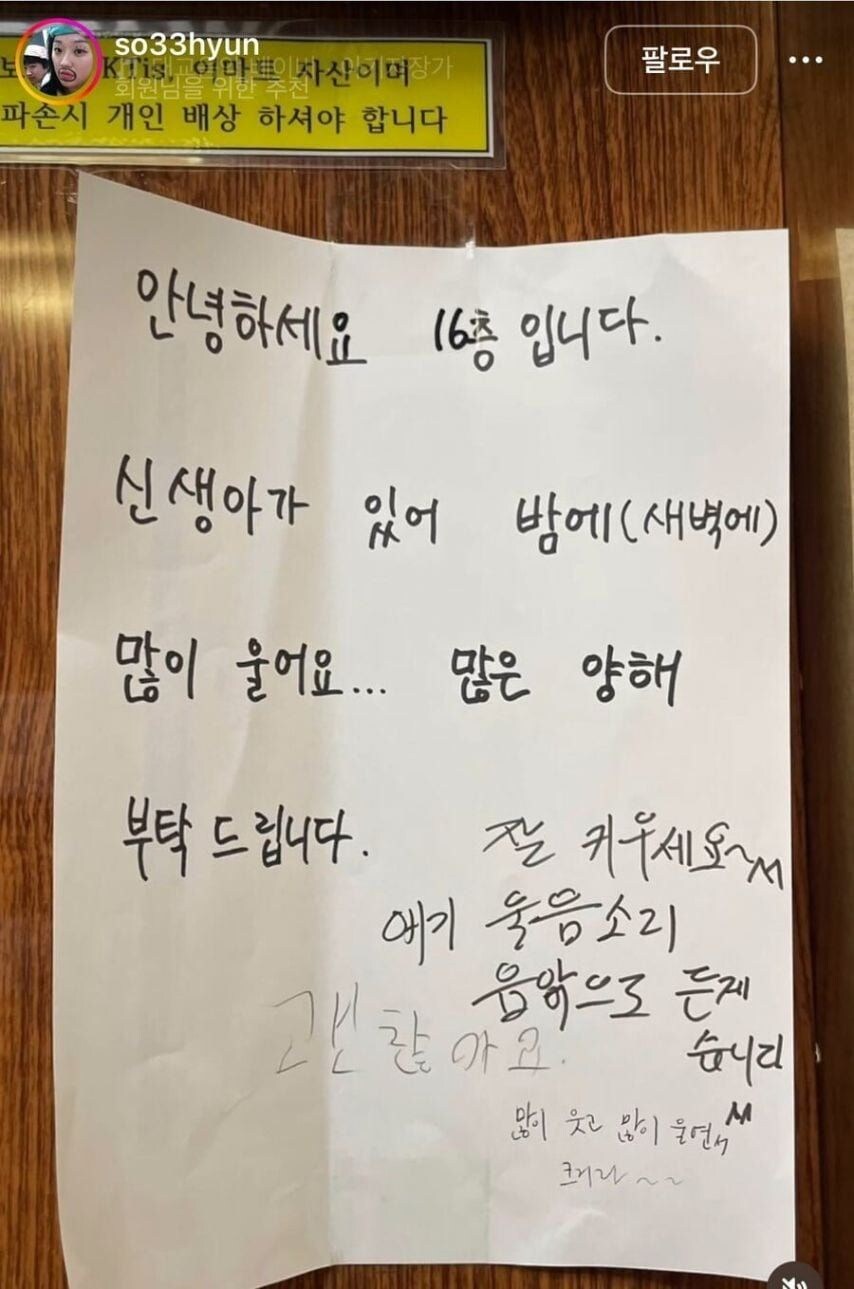 so33hyun
팔로우
회원님을 위한 추천
KTis, 이마트 자산이며
파손시 개인 배상 하셔야 합니다
안녕하세요 16층 입니다.
신생아가 있어 밤에(새벽에)
많이 울어요... 많은 양해
부탁 드립니다.
잘 키우세요~
애기 울음소리
음악으로 듣겠
습니다
괜찮아요.
많이 웃고 많이 울면서
크거라~~